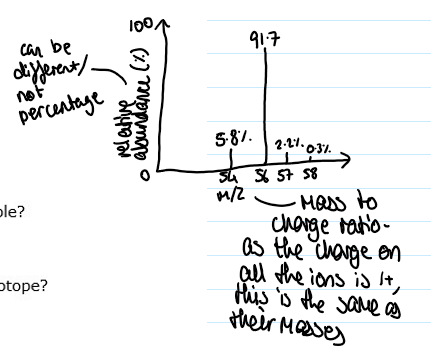 100
91.7
can be
different/
not
percentage
relative
abundance (%)
5.8%
2.2%
0.3%
0
54
56
57
58
m/z
ple?
otope?
Mass to
charge ratio-
as the charge on
all the ions is 1+,
this is the same as
their masses